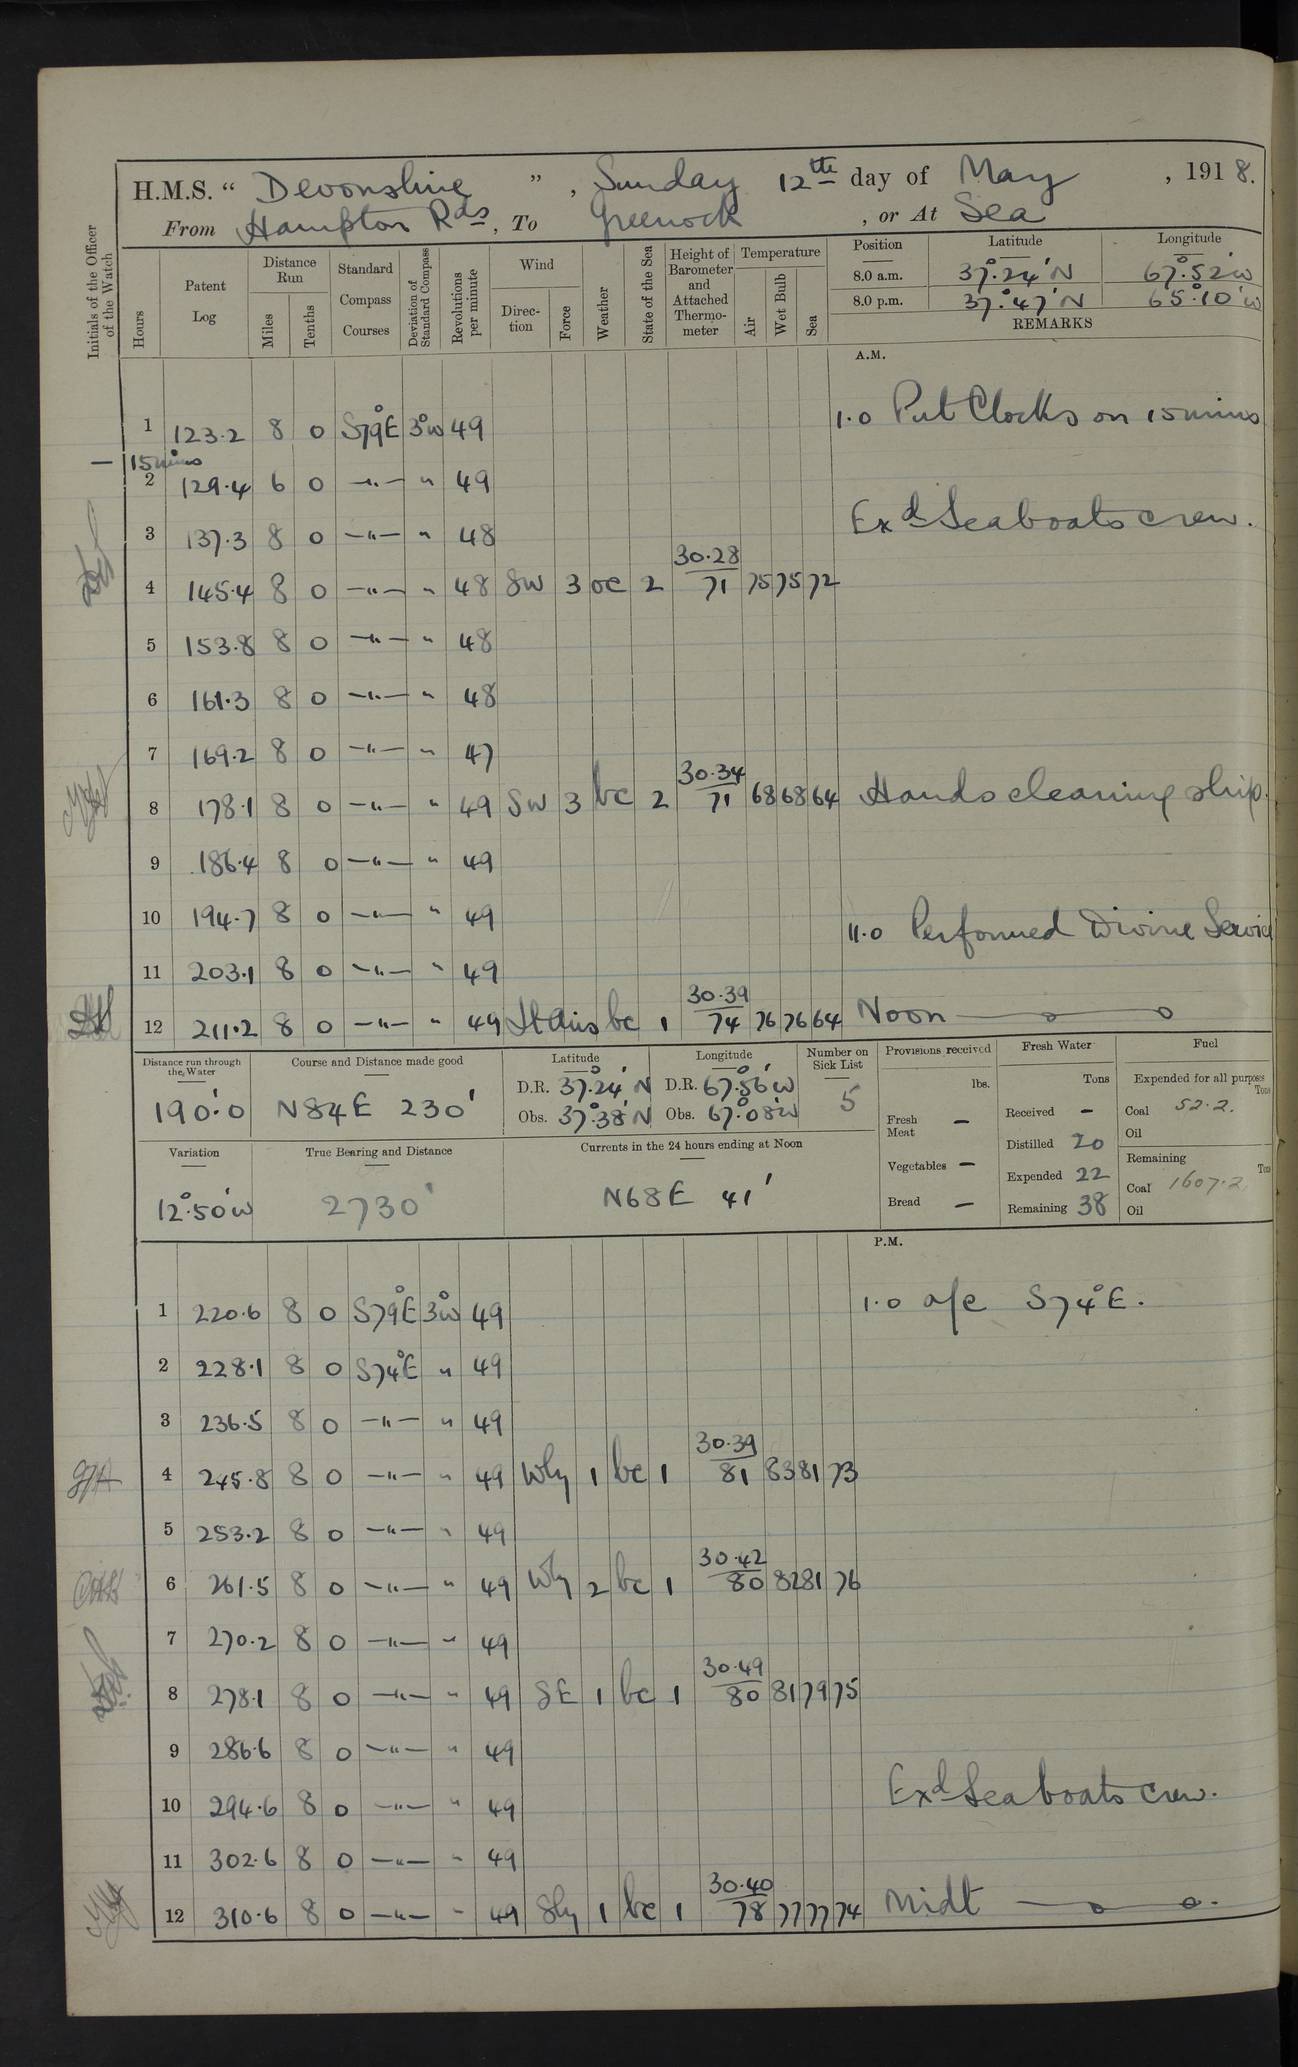 H.M.S. “ Devonshire ” , Sunday 12th day of May , 1918.
From Hampton Rds , To Greenock , or At Sea
Initials of the Officer of the Watch
Hours
Patent Log
Distance Run
Miles
Tenths
Standard Compass Courses
Deviation of Standard Compass
Revolutions per minute
Wind
Direction
Force
Weather
State of the Sea
Height of Barometer and Attached Thermometer
Temperature
Air
Wet Bulb
Sea
Position Latitude Longitude
8.0 a.m. 37°.24' N 67°.52' W
8.0 p.m. 37°.47' N 65°.10' W
REMARKS
A.M.
1 123.2 8 0 S79°E 3°W 49 1.0 Put Clocks on 15 mins
— 15 mins
2 129.4 6 0 —"— " 49
3 137.3 8 0 —"— " 48 Exd Seaboats crew.
4 145.4 8 0 —"— " 48 SW 3 oc 2 30.28/71 75 75 72
5 153.8 8 0 —"— " 48
6 161.3 8 0 —"— " 48
7 169.2 8 0 —"— " 47
8 178.1 8 0 —"— " 49 SW 3 bc 2 30.34/71 68 68 64 Hands cleaning ship.
9 186.4 8 0 —"— " 49
10 194.7 8 0 —"— " 49
11.0 Performed Divine Service
11 203.1 8 0 —"— " 49
12 211.2 8 0 —"— " 49 Lt Airs bc 1 30.39/74 76 76 64 Noon
Distance run through the Water
190.0
Course and Distance made good
N84E 230'
Latitude
D.R. 37°.24' N
Obs. 37°.38' N
Longitude
D.R. 67°.56' W
Obs. 67°.08' W
Number on Sick List
5
Variation
12°.50' W
True Bearing and Distance
2730'
Currents in the 24 hours ending at Noon
N68E 41'
Provisions received
lbs.
Fresh Meat —
Vegetables —
Bread —
Fresh Water
Tons
Received —
Distilled 20
Expended 22
Remaining 38
Fuel
Expended for all purposes
Tons
Coal 52.2.
Oil
Remaining
Tons
Coal 1607.2
Oil
P.M.
1 220.6 8 0 S79°E 3°W 49 1.0 a/c S74°E.
2 228.1 8 0 S74°E " 49
3 236.5 8 0 —"— " 49
4 245.8 8 0 —"— " 49 Wly 1 bc 1 30.39/81 83 81 73
5 253.2 8 0 —"— " 49
6 261.5 8 0 —"— " 49 Wly 2 bc 1 30.42/80 82 81 76
7 270.2 8 0 —"— " 49
8 278.1 8 0 —"— " 49 SE 1 bc 1 30.49/80 81 79 75
9 286.6 8 0 —"— " 49
10 294.6 8 0 —"— " 49 Exd Seaboats crew.
11 302.6 8 0 —"— " 49
12 310.6 8 0 —"— " 49 Sly 1 bc 1 30.40/78 77 77 74 Midt